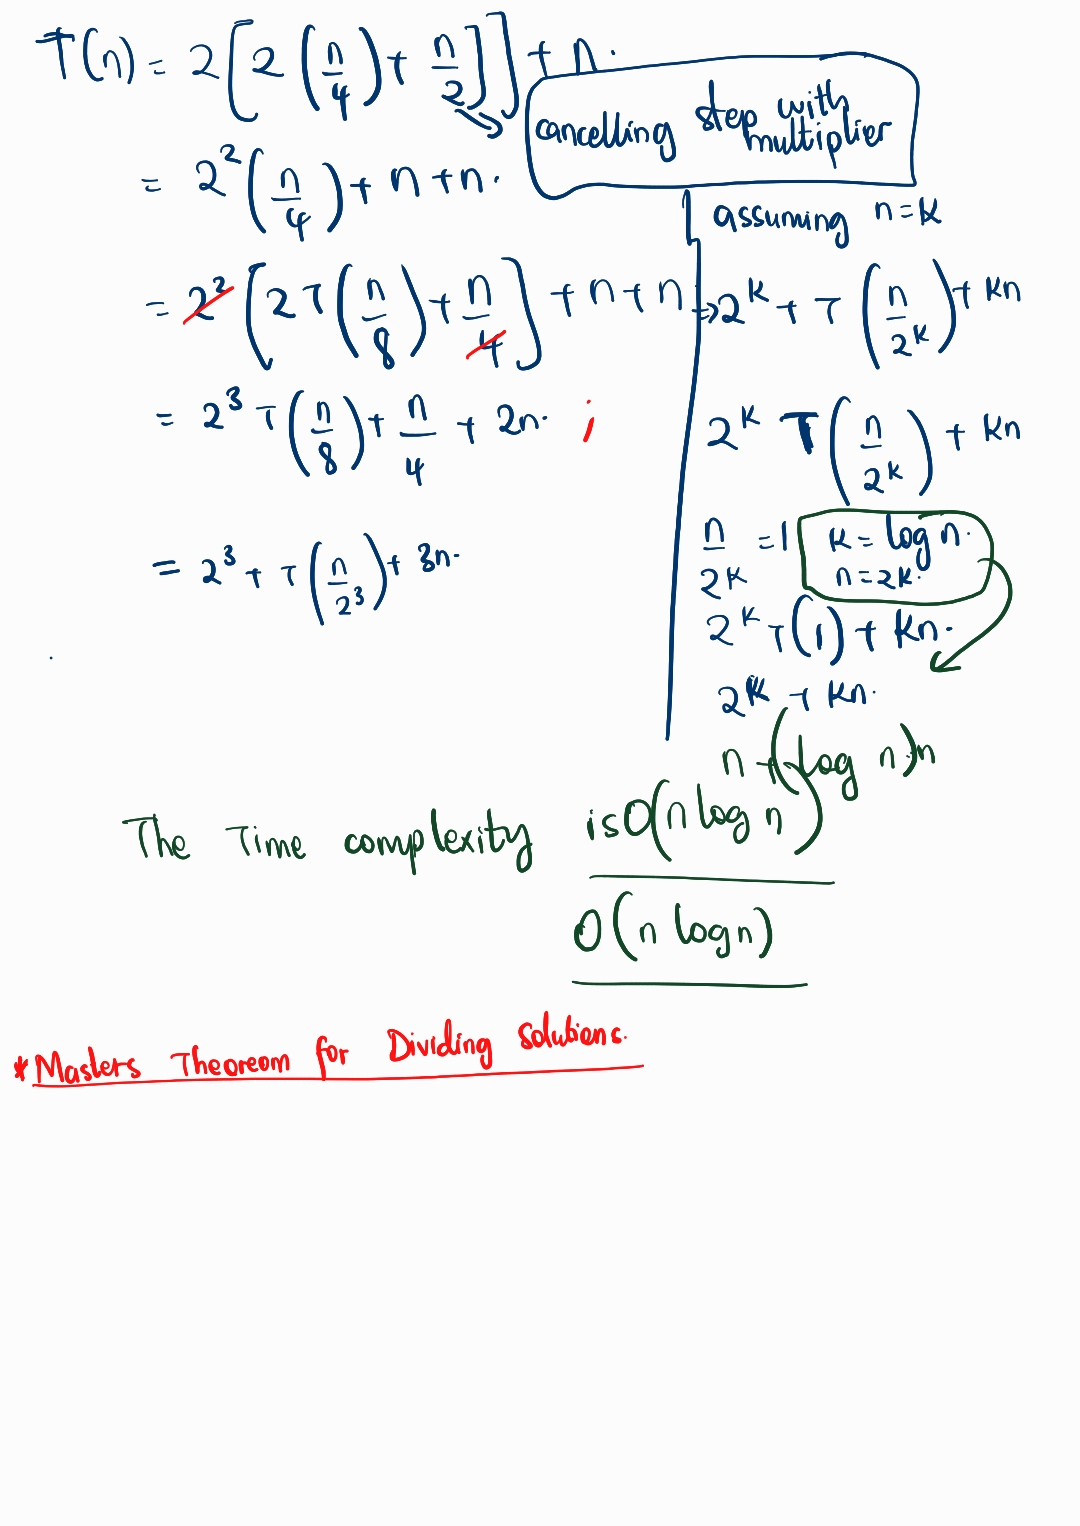 T(n) = 2[2(n/4) + n/2]] + n.
cancelling step with multiplier
= 2²(n/4) + n + n.
= 2²[2T(n/8) + n/4] + n + n
= 2³T(n/8) + n/4 + 2n. ;
= 2³ + T(n/2³) + 3n.
assuming n = k
⇒ 2ᵏ + T(n/2ᵏ) + kn
2ᵏ T(n/2ᵏ) + kn
n/2ᵏ = 1
k = log n.
n = 2k.
2ᵏ T(1) + kn.
2ᵏ + kn.
n + (log n)n
The Time complexity is O(n log n)
O(n log n)
*Masters Theorem for Dividing Solutions.